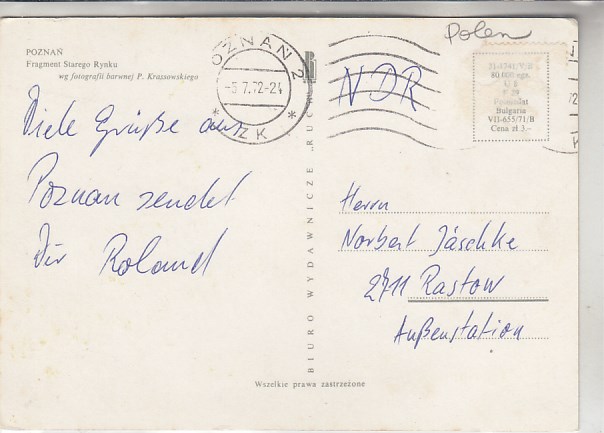 POZNAŃ
Fragment Starego Rynku
wg fotografii barwnej P. Krassowskiego
Viele Grüße aus
Poznan sendet
Dir Roland
POZNAŃ 2
-5.7.72-24
* ZK *
BIURO WYDAWNICZE „RUCH"
Polen
NDR
80.000 egz.
Bulgaria
VII-655/71/B
Cena zł 3.—
Herrn
Norbert Jäschke
2711 Rastow
Außenstation
Wszelkie prawa zastrzeżone